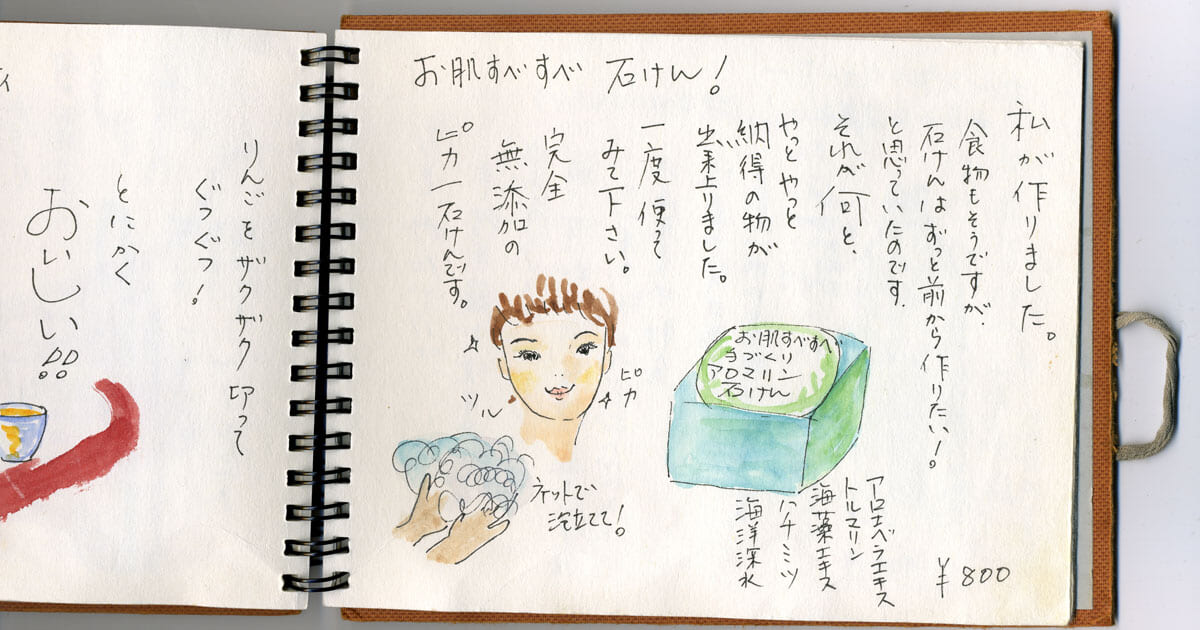 お肌すべすべ 石けん!
私が作りました。
食物もそうですが、
石けんはずっと前から作りたい!
と思っていたのです。
それが何と、
やっとやっと
納得の物が
出来上りました。
一度使って
みて下さい。
完全
無添加の
ピカ一石けんです。
ツル
ピカ
ネットで
泡立てて!
お肌すべすべ
手づくり
アロマリン
石けん
アロエベラエキス
トルマリン
海藻エキス
ハチミツ
海洋深水
¥800
りんごをザクザク切って
ぐつぐつ!
とにかく
おいしい!!